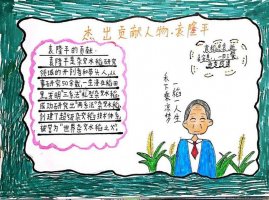 杰出贡献人物·袁隆平
袁隆平的贡献:
袁隆平是杂交水稻研究
领域的开创者和带头人,从
事研究50余载,一生浸在稻田
里,发明"三系法"籼型杂交水稻,
成功研究出"两系法"杂交水稻,
创建了超级杂交稻技术体系,
被誉为"世界杂交水稻之父"。
一稻一人生
禾下乘凉梦